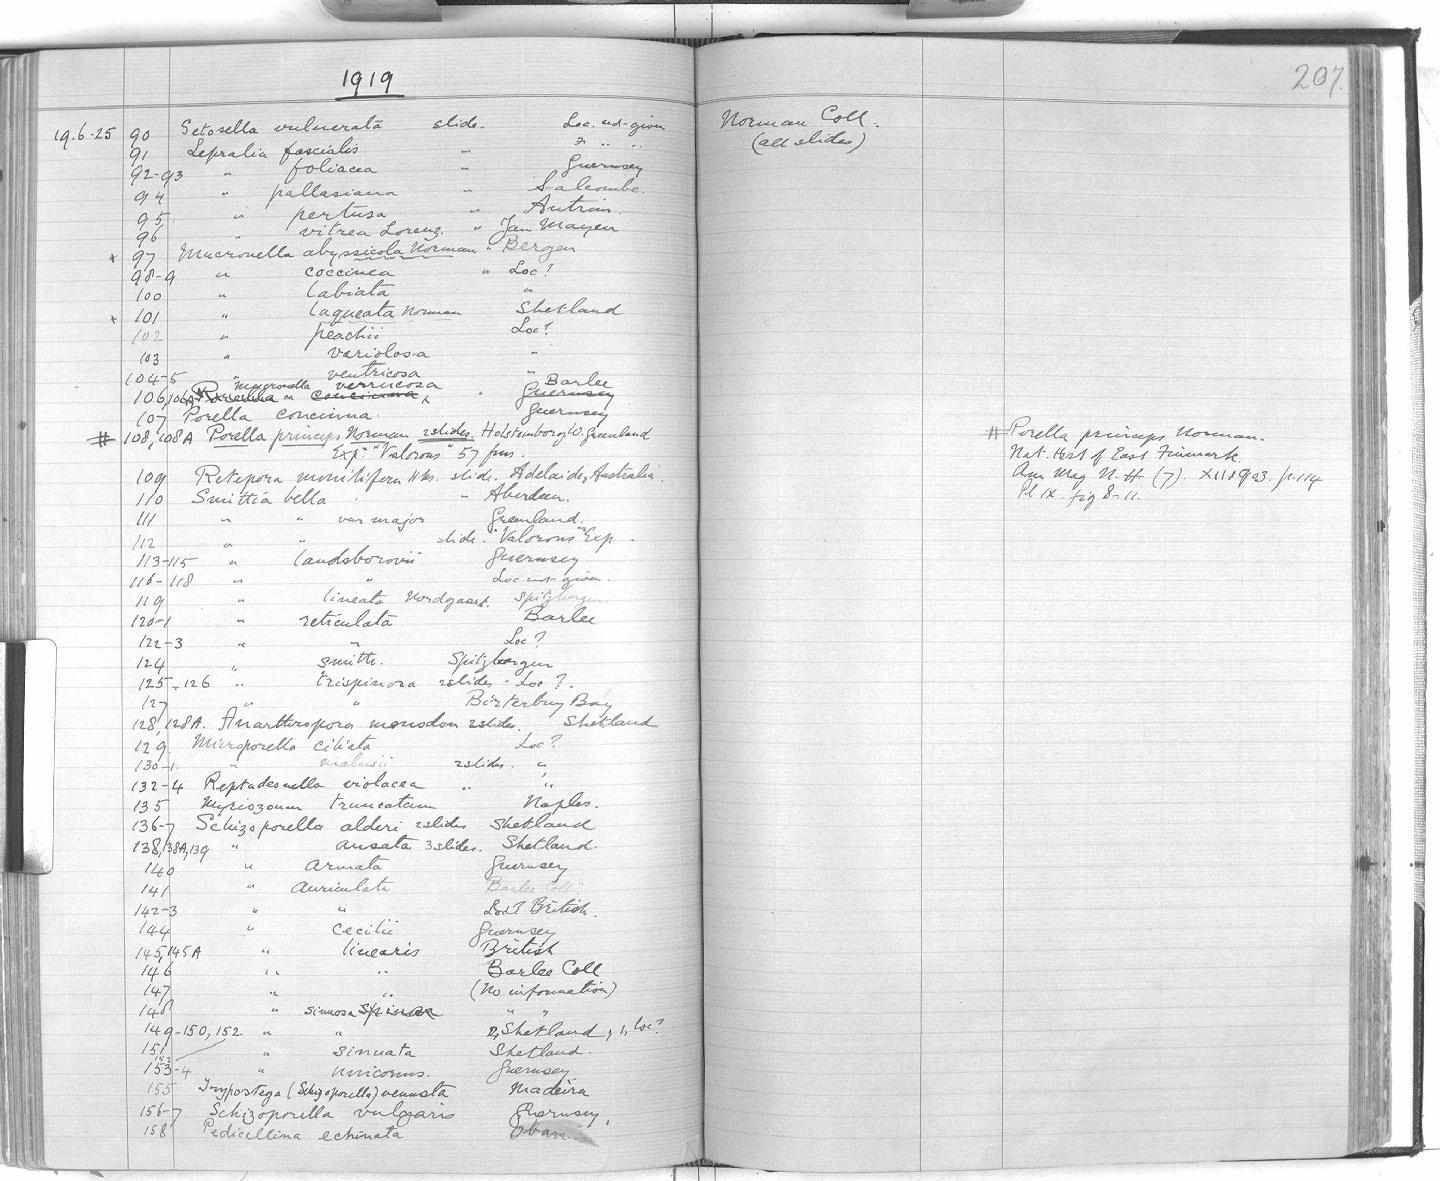 1919
207.
19.6.25 90 Setosella vulnerata slide. Loc. not given Norman Coll.
91 Lepralia fascialis " " " " (all slides)
92-93 " foliacea " Guernsey
94 " pallasiana " Salcombe.
95 " pertusa " Antrim.
96 " vitrea Lorenz. " Jan Mayen
x 97 Mucronella abyssicola Norman " Bergen
98-9 " coccinea " Loc?
100 " labiata "
x 101 " laqueata Norman Shetland
102 " peachii Loc?
103 " variolosa "
104-5 " ventricosa "
106, 106A Mucronella verrucosa Barlee
Porella concinna Guernsey
107 Porella concinna. Guernsey
# 108, 108A Porella princeps Norman 2 slides. Holstenborg W. Greenland # Porella princeps Norman.
Exp. "Valorous" 57 fms. Nat. Hist of East Finmark.
109 Retepora monilifera slide. Adelaide, Australia. Ann Mag N.H (7). XII 1903. p. 114
110 Smittia bella " Aberdeen. Pl IX. fig 8-11.
111 " " var major Greenland.
112 " " slide. "Valorous" Exp.
113-115 " landsborovii Guernsey
116-118 " " Loc not given.
119 " lineata Nordgaard. Spitzbergen.
120-1 " reticulata Barlee
122-3 " " Loc?
124 " smitti. Spitzbergen
125-126 " trispinosa 2 slides. Loc?.
127 " " Birterbuy Bay
128, 128A. Anarthropora monodon 2 slides. Shetland
129 Microporella ciliata Loc?
130-1. " malusii 2 slides. "
132-4 Reptadeonella violacea " "
135 Myriozoum truncatum Naples.
136-7 Schizoporella alderi 2 slides Shetland
138, 138A, 139 " ansata 3 slides. Shetland.
140 " armata Guernsey
141 " auriculata Barlee Coll?
142-3 " " Loc? British.
144 " cecilii Guernsey
145, 145A " linearis British
146 " " Barlee Coll
147 " " (No information)
148 " sinuosa spinosa " "
149-150, 152 " " 2, Shetland, 1, loc?
151 " sinuata Shetland.
152
153-4 " unicornis. Guernsey
155 (Schizoporella) venusta Madeira
156-7 Schizoporella vulgaris Guernsey.
158 Pedicellina echinata Oban.